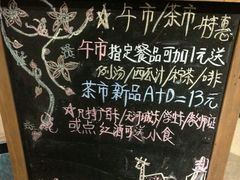 ☆午市/茶市特惠
午市指定餐品可加1元送
例汤/西瓜汁/奶茶/啡
茶市新品A+D=13元
☆凡持广百卡/天河城卡/学生卡/
或点红酒可送小食